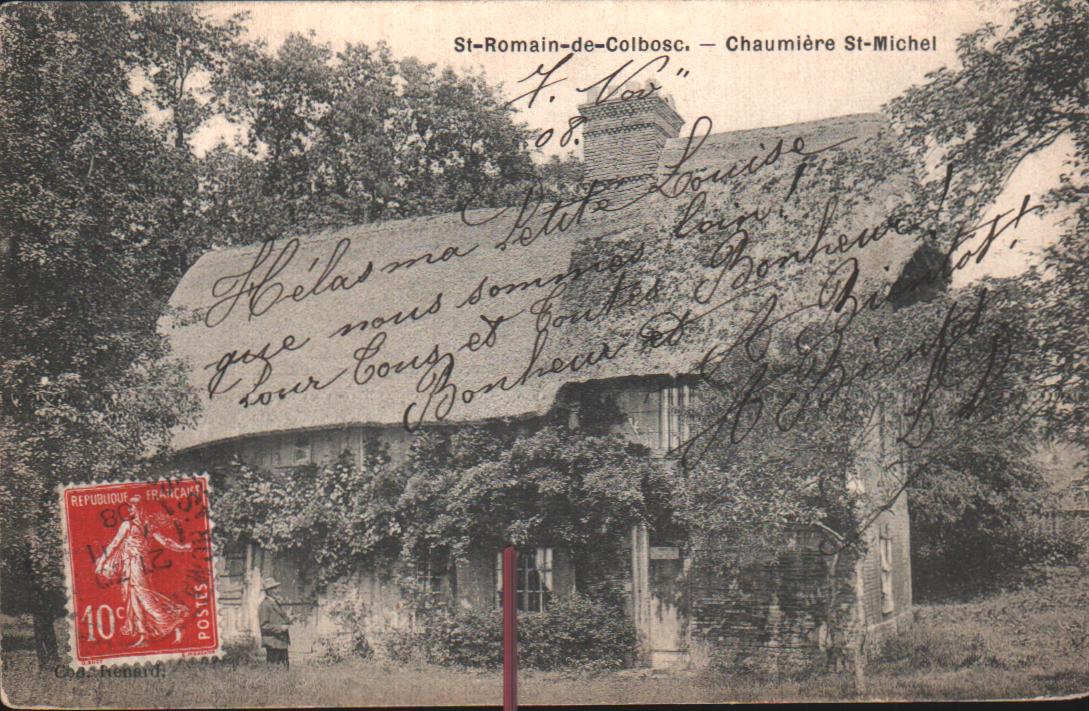 St-Romain-de-Colbosc. — Chaumière St-Michel
7. Nov"
08.
Hélas ma Petite Louise
que nous sommes loin!
pour tous et toutes Bonheur!
Bonheur et à Bientot!
à Bientot
REPUBLIQUE FRANÇAISE
10c
POSTES
Coll. Renard.